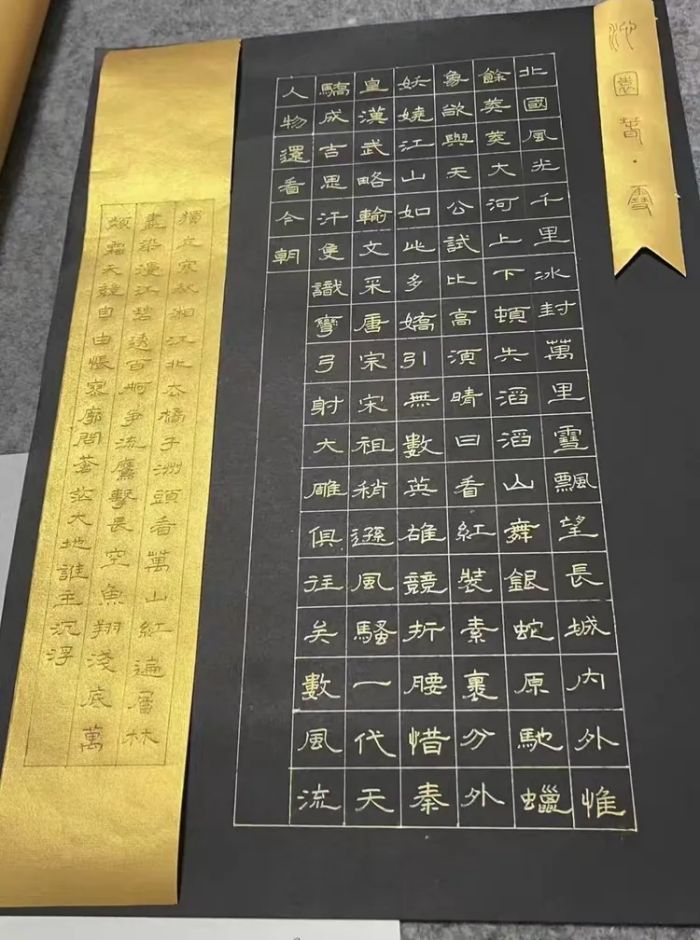 沁園春·雪
北國風光千里冰封萬里雪飄望長城内外惟
餘莽莽大河上下頓失滔滔山舞銀蛇原馳蠟
象欲與天公試比高須晴日看紅裝素裹分外
妖嬈江山如此多嬌引無數英雄競折腰惜秦
皇漢武略輸文采唐宗宋祖稍遜風騷一代天
驕成吉思汗隻識彎弓射大雕俱往矣數風流
人物還看今朝
獨立寒秋湘江北去橘子洲頭看萬山紅遍層林
盡染漫江碧透百舸爭流鷹擊長空魚翔淺底萬
類霜天競自由悵寥廓問蒼茫大地誰主沉浮